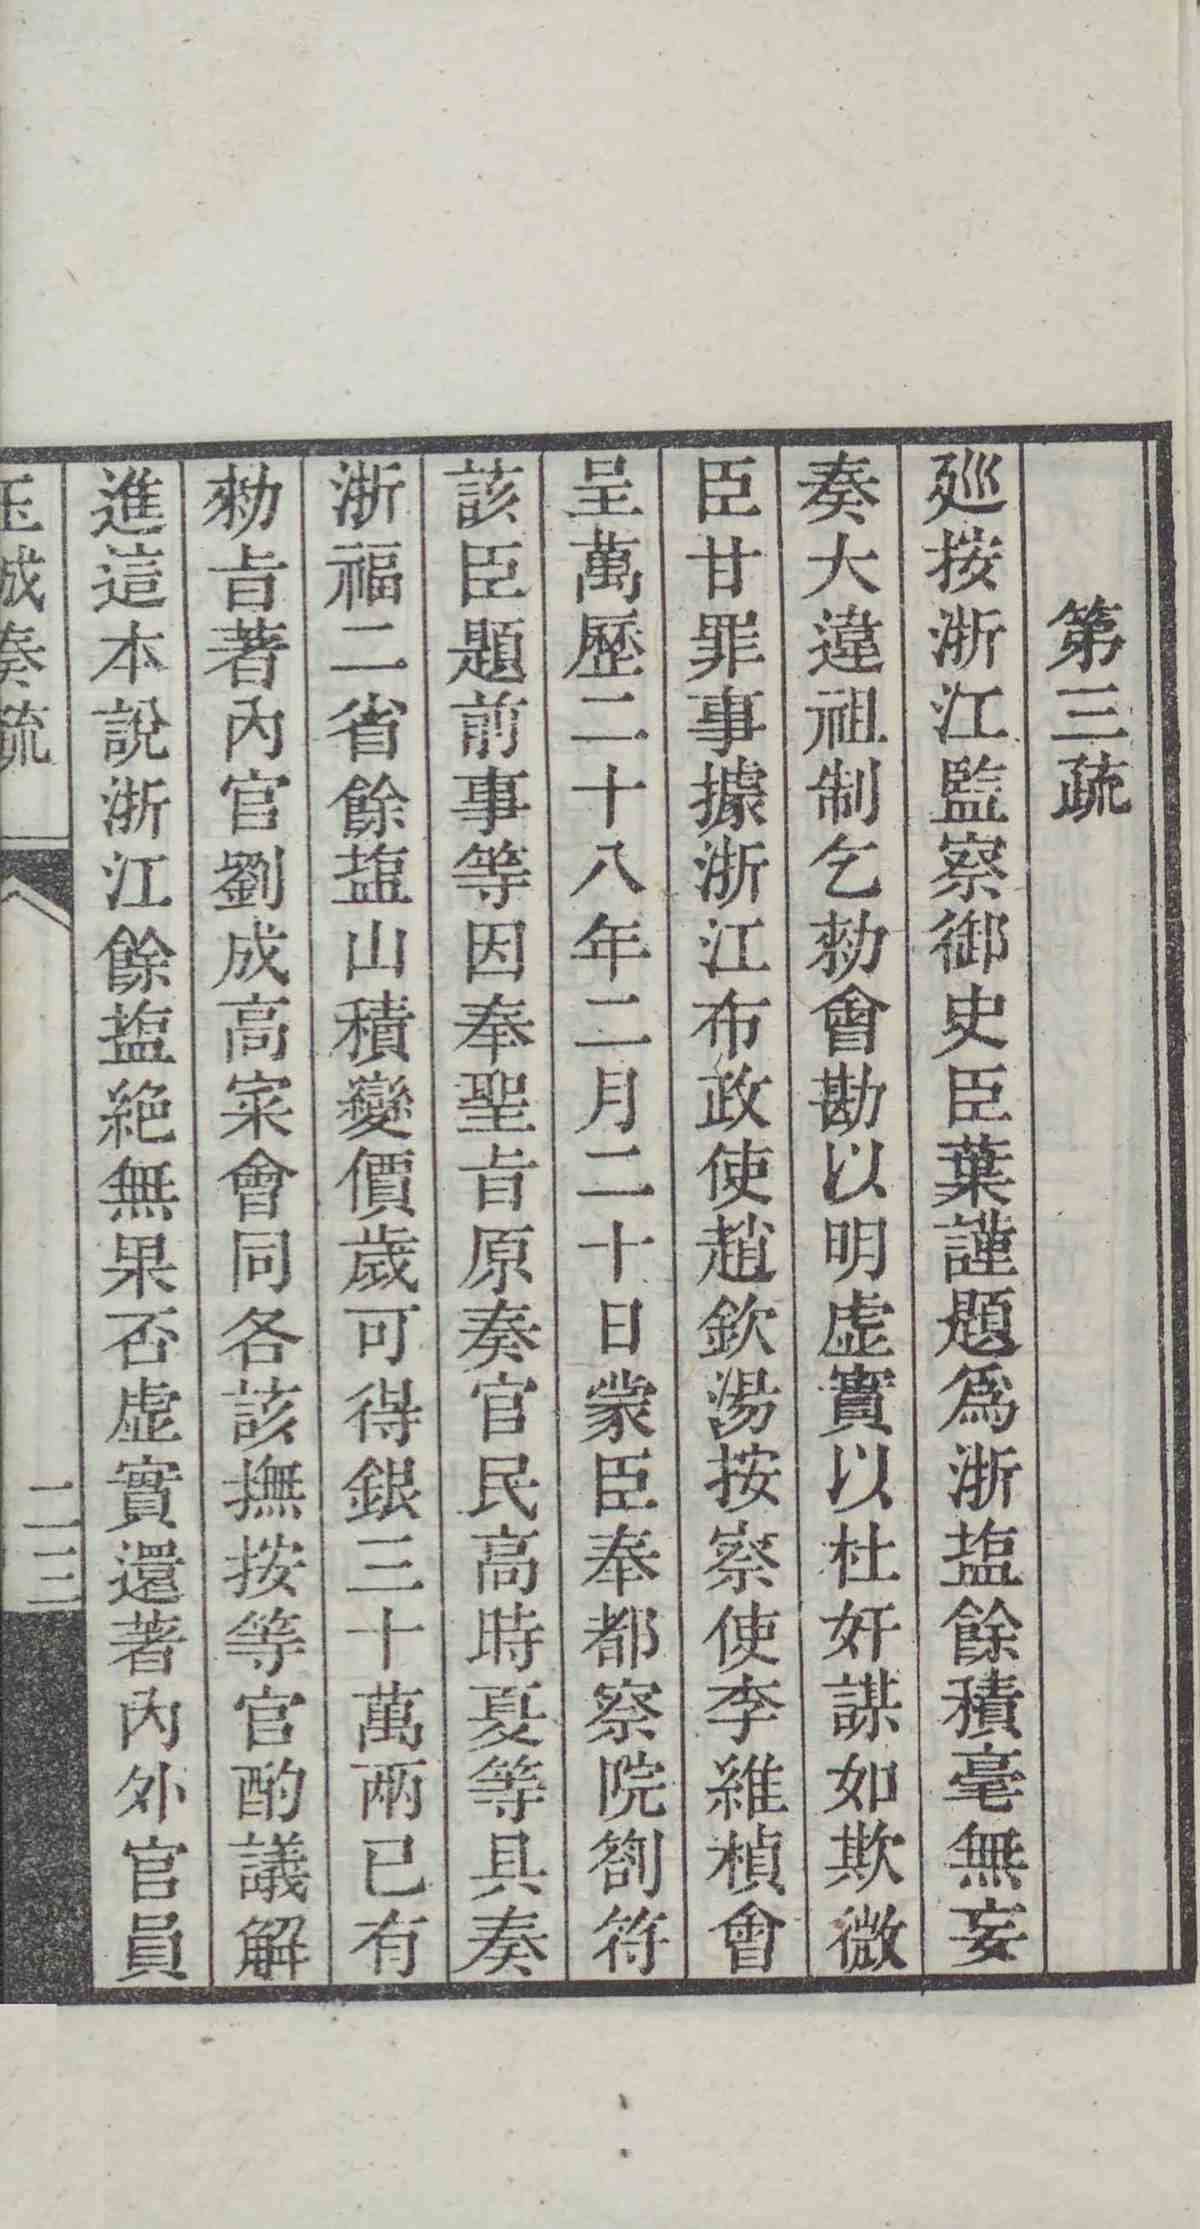 第三疏
廵按浙江監察御史臣葉謹題爲浙塩餘積毫無妄
奏大違祖制乞勑會勘以明虚實以杜奸謀如欺微
臣甘罪事據浙江布政使趙欽湯按察使李維楨會
呈萬歷二十八年二月二十日蒙臣奉都察院劄符
該臣題前事等因奉聖旨原奏官民高時夏等具奏
浙福二省餘塩山積變價歲可得銀三十萬兩已有
勑旨著內官劉成高寀會同各該撫按等官酌議解
進這本說浙江餘塩絶無果否虚實還著內外官員
玉城奏疏
二三